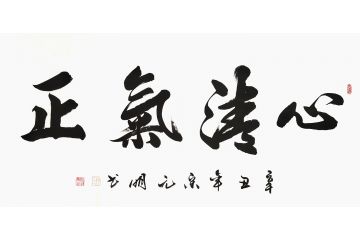 心清氣正
辛丑年宗元明书